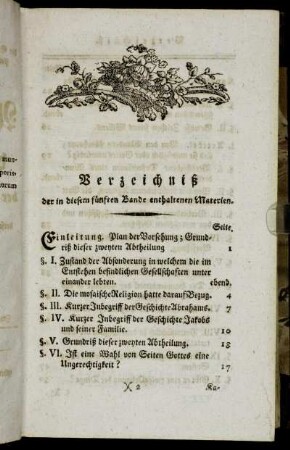 Verzeichniß
der in diesem fünften Bande enthaltenen Materien.
Seite.
Einleitung. Plan der Vorsehung; Grund-
riß dieser zweyten Abtheilung 1
§. I. Zustand der Absonderung in welchem die im
Entstehen befindlichen Gesellschaften unter
einander lebten. ebend.
§. II. Die mosaische Religion hatte darauf Bezug. 4
§. III. Kurzer Inbegriff der Geschichte Abrahams. 7
§. IV. Kurzer Inbegriff der Geschichte Jakobs
und seiner Familie. 10
§. V. Grundriß dieser zweyten Abtheilung. 13
§. VI. Ist eine Wahl von Seiten Gottes eine
Ungerechtigkeit? 17
X 2 Ka-